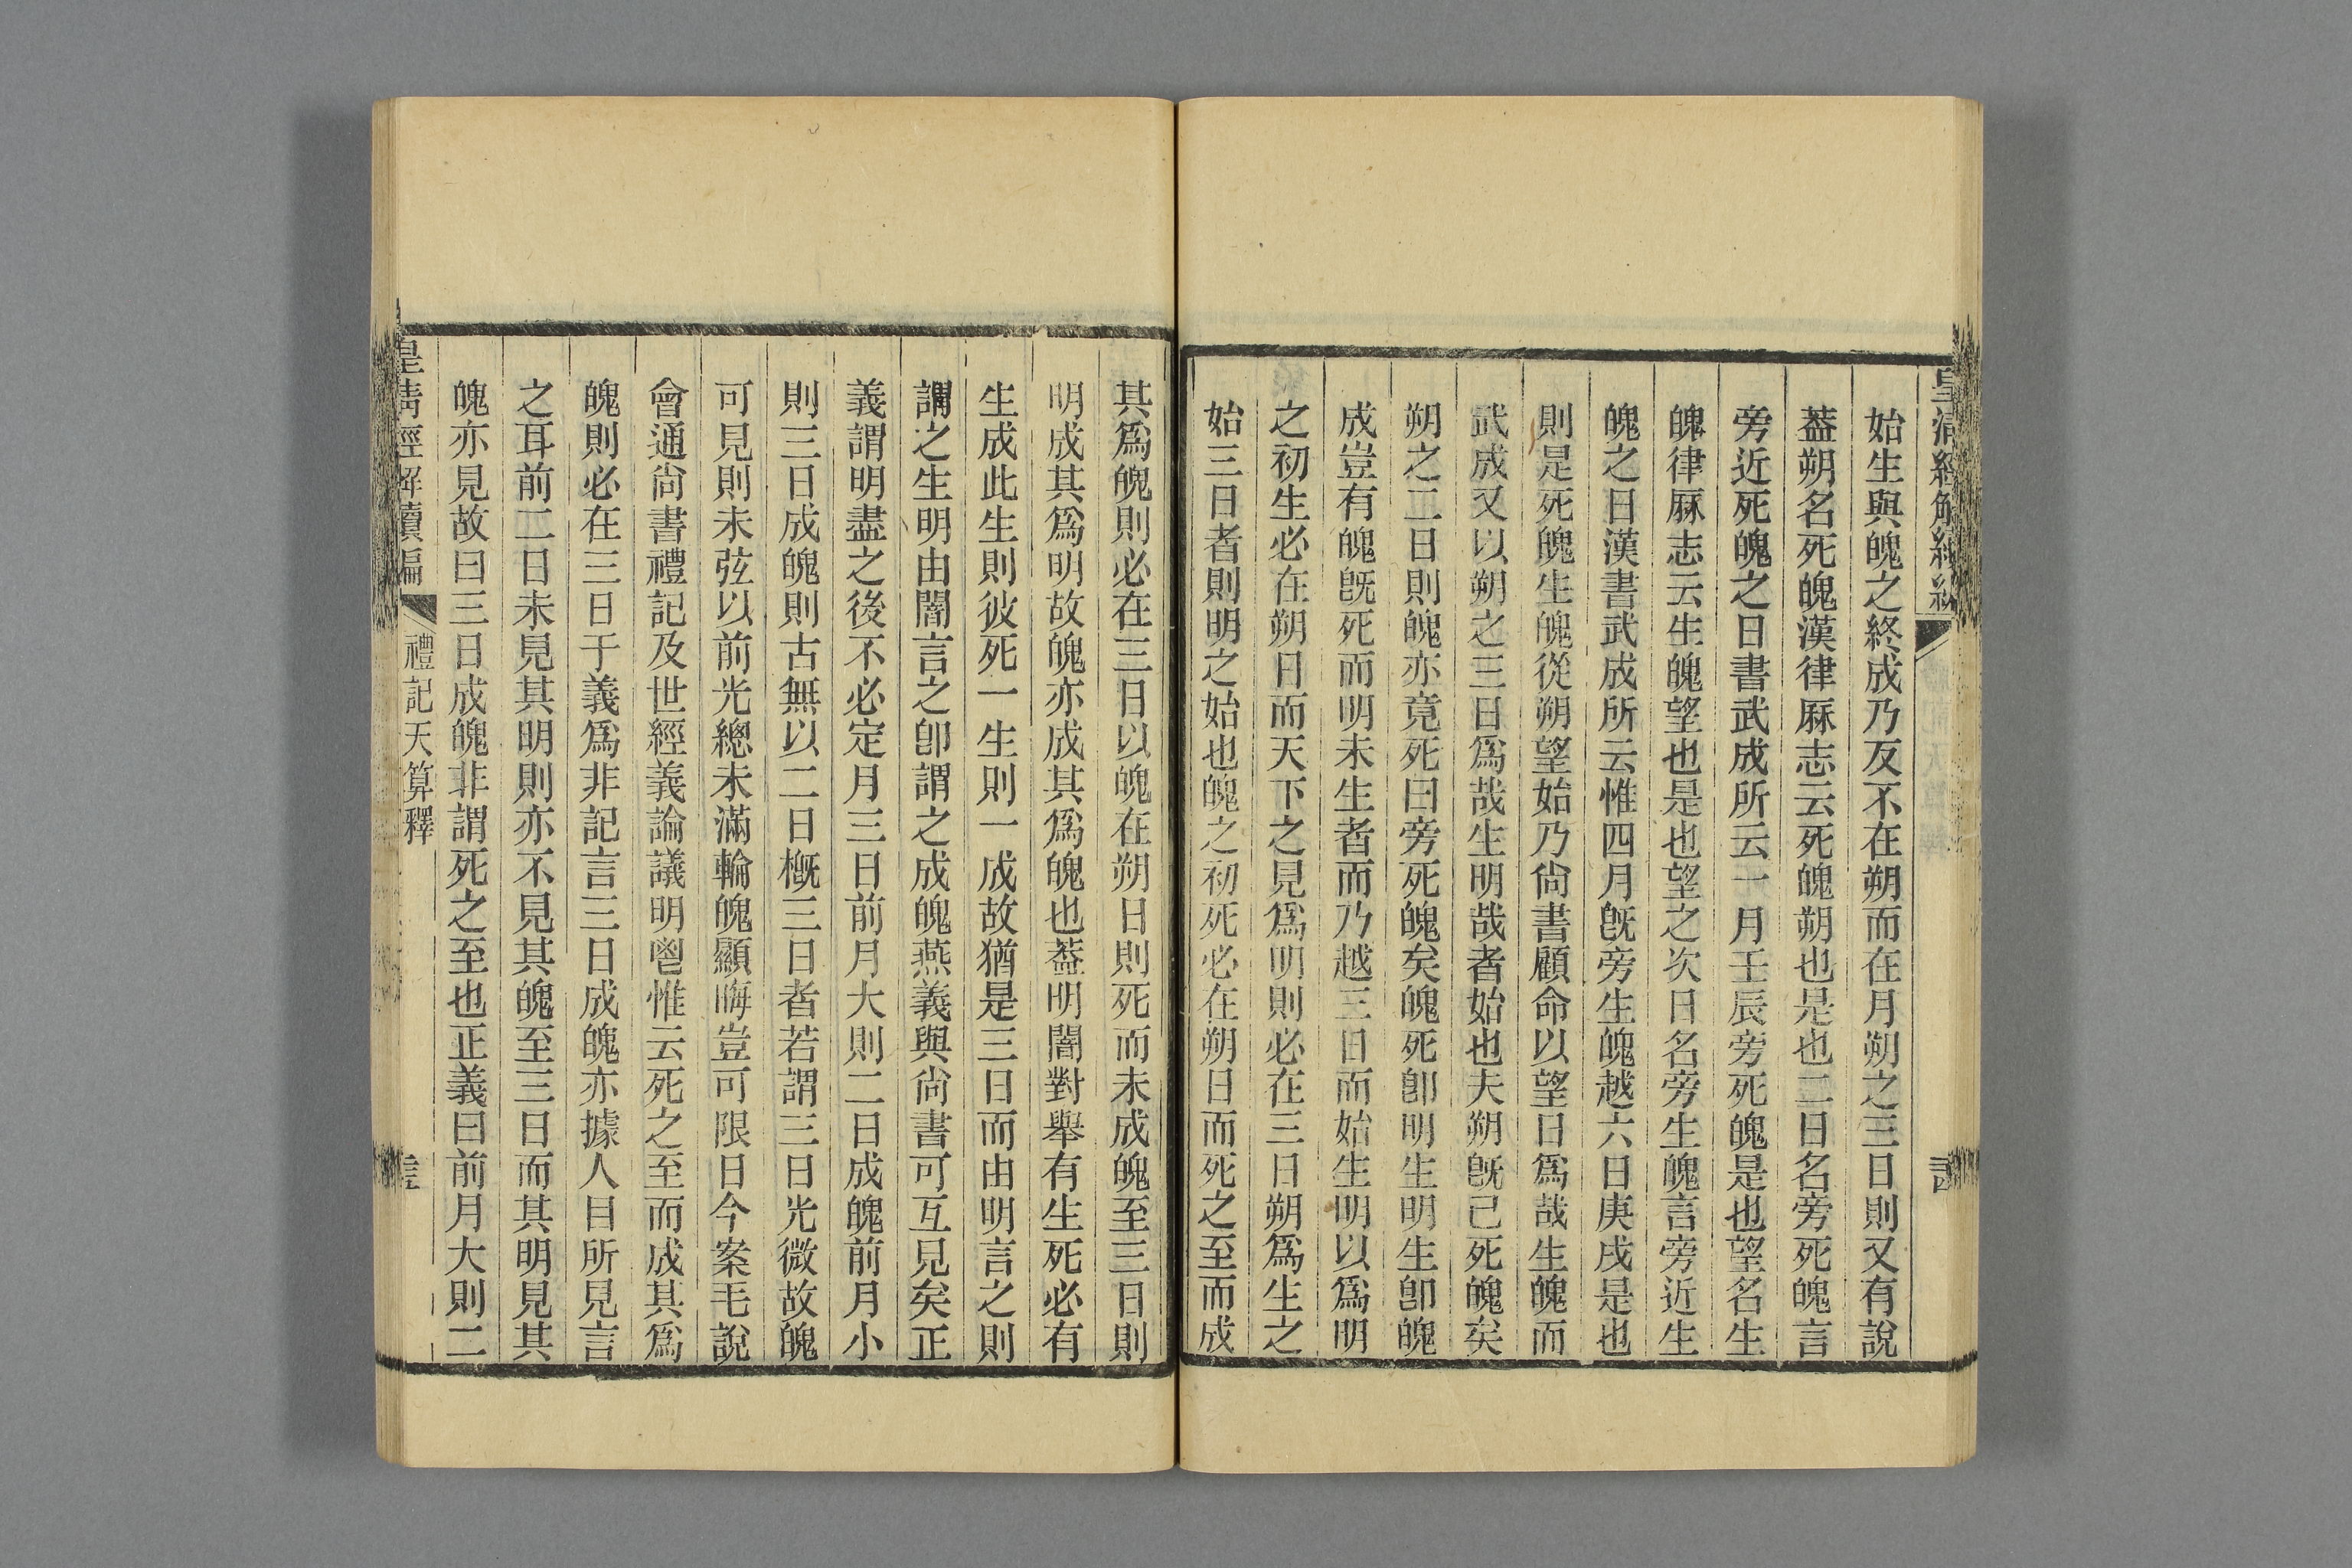 始生與魄之終成乃反不在朔而在月朔之三日則又有說
葢朔名死魄漢律厤志云死魄朔也是也二日名旁死魄言
旁近死魄之日書武成所云一月壬辰旁死魄是也望名生
魄律厤志云生魄望也是也望之次日名旁生魄言旁近生
魄之日漢書武成所云惟四月旣旁生魄越六日庚戌是也
則是死魄生魄從朔望始乃尙書顧命以望日爲哉生魄而
武成又以朔之三日爲哉生明哉者始也夫朔旣已死魄矣
朔之二日則魄亦竟死曰旁死魄矣魄死卽明生明生卽魄
成豈有魄旣死而明未生者而乃越三日而始生明以爲明
之初生必在朔日而天下之見爲明則必在三日朔爲生之
始三日者則明之始也魄之初死必在朔日而死之至而成
其爲魄則必在三日以魄在朔日則死而未成魄至三日則
明成其爲明故魄亦成其爲魄也葢明闇對舉有生死必有
生成此生則彼死一生則一成故猶是三日而由明言之則
謂之生明由闇言之卽謂之成魄燕義與尙書可互見矣正
義謂明盡之後不必定月三日前月大則二日成魄前月小
則三日成魄則古無以二日槪三日者若謂三日光微故魄
可見則未弦以前光總未滿輪魄顯晦豈可限日今案毛說
會通尙書禮記及世經義論議明鬯惟云死之至而成其爲
魄則必在三日于義爲非記言三日成魄亦據人目所見言
之耳前二日未見其明則亦不見其魄至三日而其明見其
魄亦見故曰三日成魄非謂死之至也正義曰前月大則二
皇淸經解續編
禮記天算釋